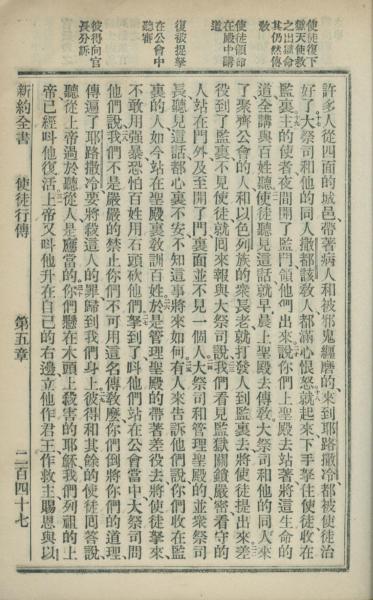 使徒復下
獄天使救
之出獄命
其仍然傳
教
使徒領命
在殿中講
道
復被提拏
在公會中
聽審
彼得向官
長分訴
許多人從四面的城邑帶著病人和被邪鬼纏磨的來到耶路撒冷都被使徒治
好了大祭司和他的同人撒都該教人都滿心恨怒就起來下手拏住使徒收在
監裏主的使者夜間開了監門領他們出來說你們上聖殿去站著將這生命的
道全講與百姓聽使徒聽見這話就早晨上聖殿去傳教大祭司和他的同人來
了聚齊公會的人和以色列族的衆長老就打發人到監裏去將使徒提出來差
役到了監裏不見使徒就回來報與大祭司說我們看見監獄關鎖嚴密看守的
人站在門外及至開了門裏面並不見一個人大祭司和管理聖殿的並衆祭司
長聽見這話都心裏不安不知這事將來如何有人來告訴他們說你們收在監
裏的人如今站在聖殿裏敎訓百姓於是管理聖殿的帶著差役去將使徒拏來
不敢用强暴恐怕百姓用石頭砍他們拏到了叫他們站在公會當中大祭司問
他們說我們不是嚴嚴的禁止你們不可用這名傳敎麼你們倒將你們的道理
傳遍了耶路撒冷要將殺這人的罪歸到我們身上彼得和其餘的使徒回答說
聽從上帝過於聽從人是應當的你們懸在木頭上殺害的耶穌我們列祖的上
帝已經叫他復活上帝又叫他升在自己的右邊立他作君王作救主賜恩與以
新約全書 使徒行傳 第五章 二百四十七